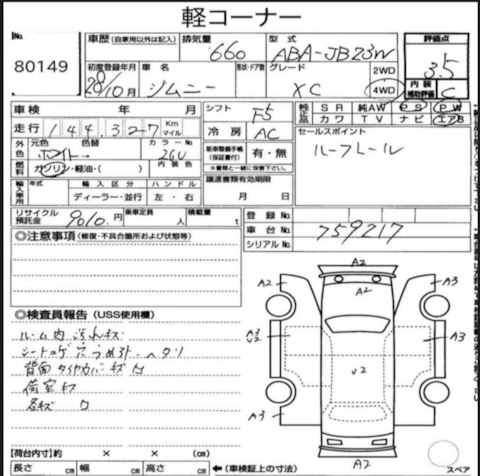 軽コーナー
No.
80149
車歴 (自家用以外は記入)
排気量
660
型式
ABA-JB23W
評価点
3.5
初度登録年月
20/10月
車名
ジムニー
形状・ドア数
グレード
XC
2WD
4WD
内装
補助評価
C
車検 年 月
シフト
F5
純正品
SR 純AW PS PW
カワ TV ナビ エアB
走行 144,327 Km マイル
冷房
AC
セールスポイント
ルーフレール
外色
元色
色替
カラーNo.
ホワイト
26U
燃料
ガソリン・軽油・( )
内装色
新車整備手帳
(保証書付)
有・無
※書類と一緒に保管下さい。
輸入車用
年式
輸入区分
ハンドル
ディーラー・並行
左・右
譲渡書類有効期限
月 日
リサイクル預託金
9010円
乗車定員
人
積載量
t
登録No.
車台No.
759217
シリアルNo.
◎注意事項 (修復・不具合箇所および状態等)
◎検査員報告 (USS使用欄)
ルーム内汚れキズ
シートコゲ穴
背面タイヤカバーキズ
荷室キズ
各キズ
A2
A2
A2
A3
A3
A3
A3
V2
A2
【荷台内寸】約 × × (cm)
長さ cm 幅 cm 高さ cm
(車検証上の寸法)
スペア